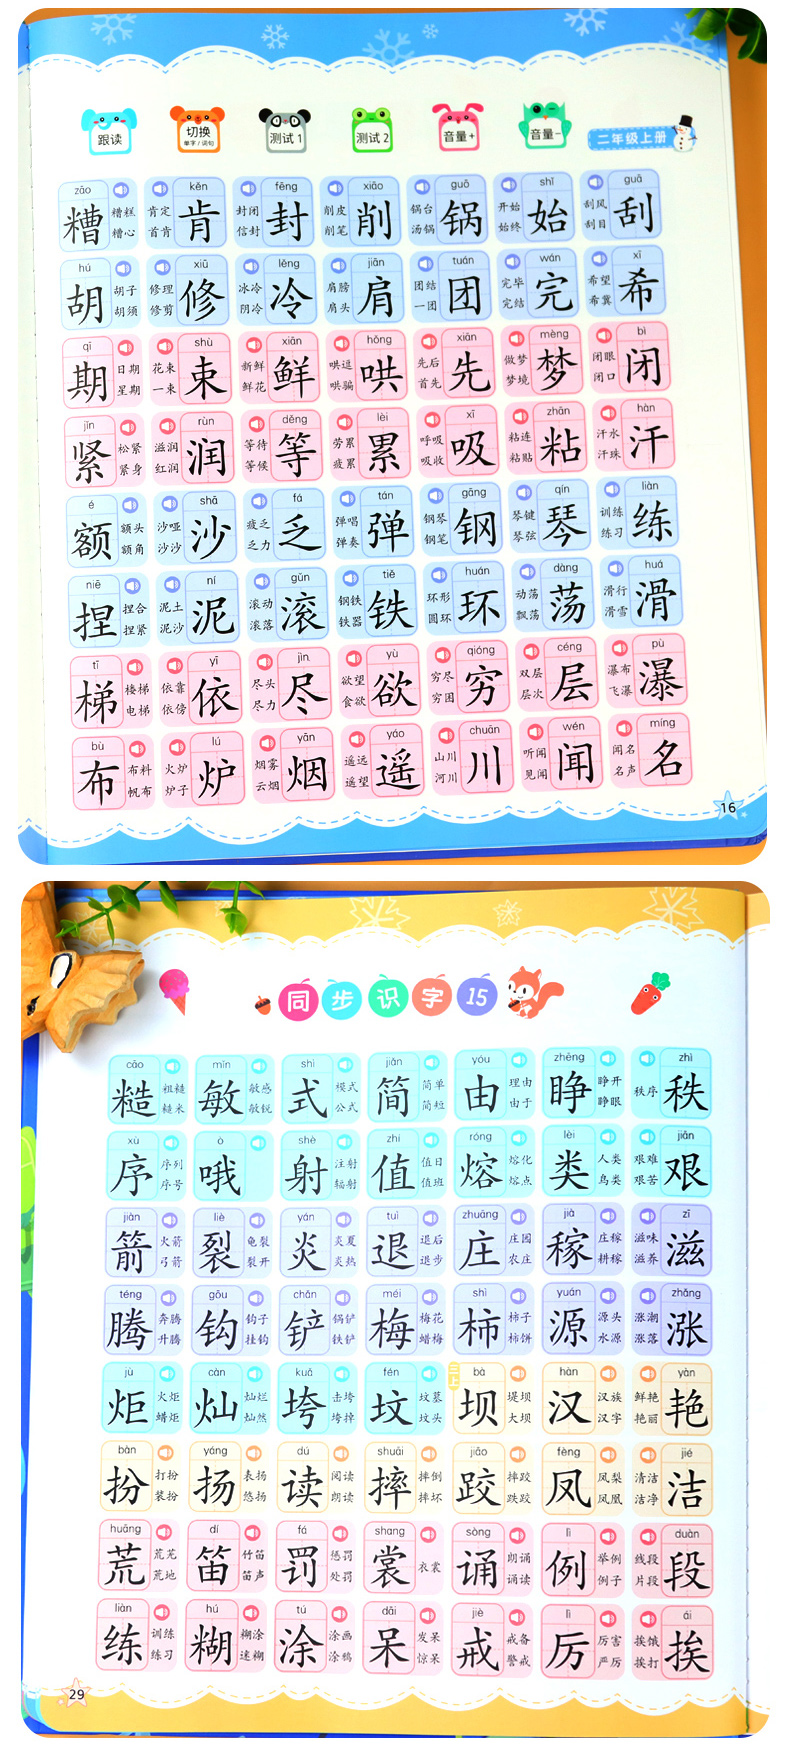 跟读 切换 测试1 测试2 音量+ 音量-
单字/词句
二年级上册
zāo kěn fēng xiāo guō shǐ guā
糟 糟糕 糟心 肯定 首肯 肯 封闭 信封 封 削皮 削笔 削 锅台 汤锅 锅 开始 始终 始 刮风 刮目 刮
hú xiū lěng jiān tuán wán xī
胡 胡子 胡须 修理 修剪 修 冰冷 阴冷 冷 肩膀 肩头 肩 团结 一团 团 完毕 完结 完 希望 希冀 希
qī shù xiān hǒng xiān mèng bì
期 日期 星期 花束 一束 束 新鲜 鲜花 鲜 哄逗 哄骗 哄 先后 首先 先 做梦 梦境 梦 闭眼 闭口 闭
jǐn rùn děng lèi xī zhān hàn
紧 松紧 紧身 滋润 红润 润 等待 等候 等 劳累 疲累 累 呼吸 吸收 吸 粘连 粘贴 粘 汗水 汗珠 汗
é shā fá tán gāng qín liàn
额 额头 额角 沙哑 沙沙 沙 疲乏 乏力 乏 弹唱 弹奏 弹 钢琴 钢笔 钢 琴键 琴弦 琴 训练 练习 练
niē ní gǔn tiě huán dàng huá
捏 捏合 捏紧 泥土 泥沙 泥 滚动 滚落 滚 钢铁 铁器 铁 环形 圆环 环 动荡 飘荡 荡 滑行 滑雪 滑
tī yī jìn yù qióng céng pù
梯 楼梯 电梯 依靠 依傍 依 尽头 尽力 尽 欲望 食欲 欲 穷尽 穷困 穷 双层 层次 层 瀑布 飞瀑 瀑
bù lú yān yáo chuān wén míng
布 布料 帆布 火炉 炉子 炉 烟雾 云烟 烟 遥远 遥望 遥 山川 河川 川 听闻 见闻 闻 闻名 名声 名
16
同步识字15
cāo mǐn shì jiǎn yóu zhēng zhì
糙 粗糙 糙米 敏 敏感 敏锐 式 模式 公式 简 简单 简短 由 理由 由于 睁 睁开 睁眼 秩序 秩
xù ò shè zhí róng lèi jiān
序 序列 序号 哦 射 注射 辐射 值 值日 值班 熔 熔化 熔点 类 人类 鸟类 艰难 艰苦 艰
jiàn liè yán tuì zhuāng jià zī
箭 火箭 弓箭 裂 龟裂 裂开 炎 炎夏 炎热 退 退后 退步 庄 庄园 农庄 稼 庄稼 耕稼 滋味 滋养 滋
téng gōu chǎn méi shì yuán zhǎng
腾 奔腾 升腾 钩 钩子 挂钩 铲 锅铲 铁铲 梅 梅花 蜡梅 柿 柿子 柿饼 源 源头 水源 涨潮 涨落 涨
jù càn kuǎ fén bà hàn yàn
炬 火炬 蜡炬 灿 灿烂 灿然 垮 击垮 垮掉 坟 坟墓 坟头 三上 坝 堤坝 大坝 汉 汉族 汉字 鲜艳 艳丽 艳
bàn yáng dú shuāi jiāo fèng jié
扮 打扮 装扮 扬 表扬 悠扬 读 阅读 朗读 摔 摔倒 摔坏 跤 摔跤 跌跤 凤 凤梨 凤凰 清洁 洁净 洁
huāng dí fá shang sòng lì duàn
荒 荒芜 荒地 笛 竹笛 笛声 罚 惩罚 处罚 裳 衣裳 诵 朗诵 诵读 例 举例 例子 线段 片段 段
liàn hú tú dāi jiè lì ái
练 训练 练习 糊 糊涂 迷糊 涂 涂画 涂鸦 呆 发呆 惊呆 戒 戒备 警戒 厉 厉害 严厉 挨饿 挨打 挨
29